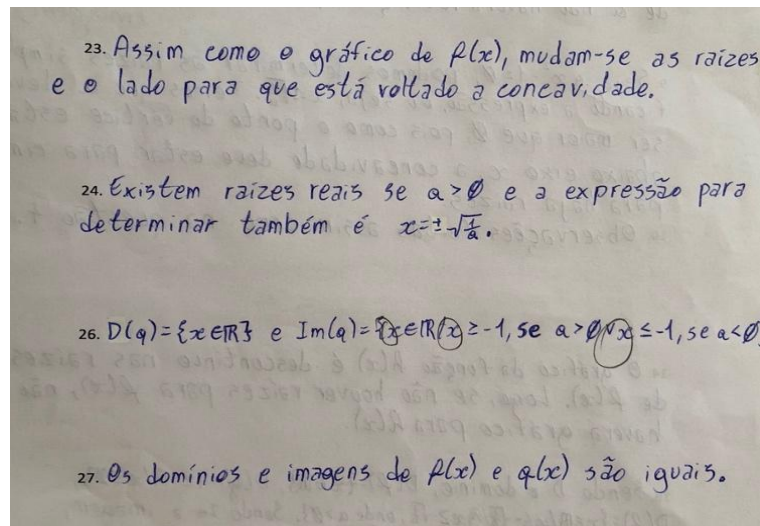 23. Assim como o gráfico de f(x), mudam-se as raízes
e o lado para que está voltado a concavidade.
24. Existem raízes reais se a > 0 e a expressão para
determinar também é x = ± √(1/a).
26. D(q) = {x ∈ ℝ} e Im(q) = {x ∈ ℝ / x ≥ -1, se a > 0 ∨ x ≤ -1, se a < 0
27. Os domínios e imagens de f(x) e q(x) são iguais.